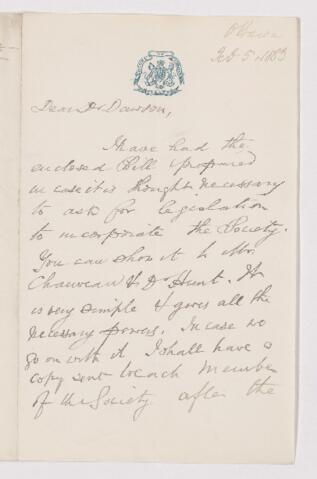 Ottawa
Feb 5 1883
Dear Dr Dawson,
I have had the
enclosed Bill prepared
in case it is thought necessary
to ask for legislation
to incorporate the Society.
You can show it to Mr.
Chauveau & Dr Hunt. It
is very simple & gives all the
necessary powers. In case we
go on with it I shall have a
copy sent to each Member
of the Society after the